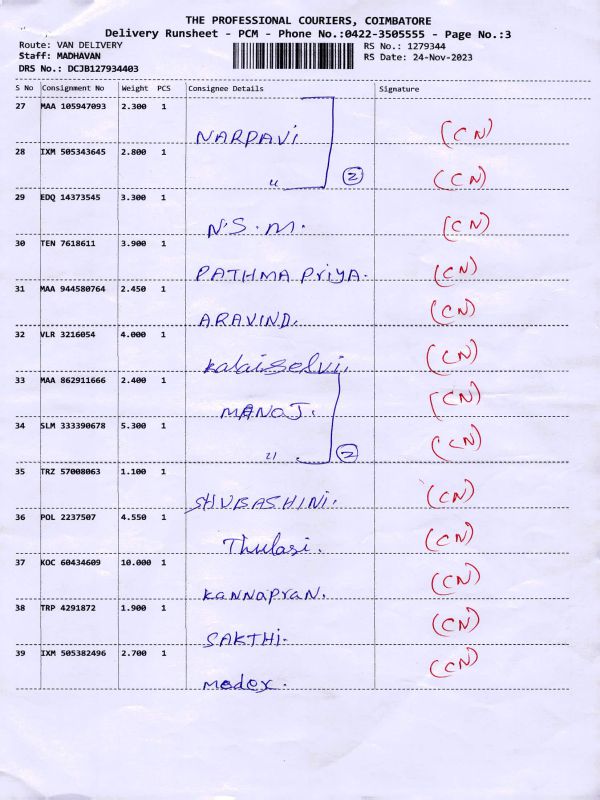 THE PROFESSIONAL COURIERS, COIMBATORE
Delivery Runsheet - PCM - Phone No.:0422-3505555 - Page No.:3
Route: VAN DELIVERY RS No.: 1279344
Staff: MADHAVAN RS Date: 24-Nov-2023
DRS No.: DCJB127934403
S No Consignment No Weight PCS Consignee Details Signature
27 MAA 105947093 2.300 1
NARPAVI (CN)
28 IXM 505343645 2.800 1
〃 2 (CN)
29 EDQ 14373545 3.300 1
N.S.M. (CN)
30 TEN 7618611 3.900 1
PATHMA PriYA. (CN)
31 MAA 944580764 2.450 1
ARAVIND. (CN)
32 VLR 3216054 4.000 1
Kalaiselvi. (CN)
33 MAA 862911666 2.400 1
MANOJ. (CN)
34 SLM 333390678 5.300 1
〃 2 (CN)
35 TRZ 57008063 1.100 1
SHUBASHINI. (CN)
36 POL 2237507 4.550 1
Thulasi. (CN)
37 KOC 60434609 10.000 1
KANNAPrAN. (CN)
38 TRP 4291872 1.900 1
SAKTHI. (CN)
39 IXM 505382496 2.700 1
Medex. (CN)